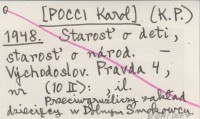 [POCCI Karol] (K.P.)
1948. Starosť o deti,
starosť o národ. –
Východoslov. Pravda 4,
nr (10 II): , il.
Przeciwgruźliczy zakład
dziecięcy w Dolnym Smokowcu